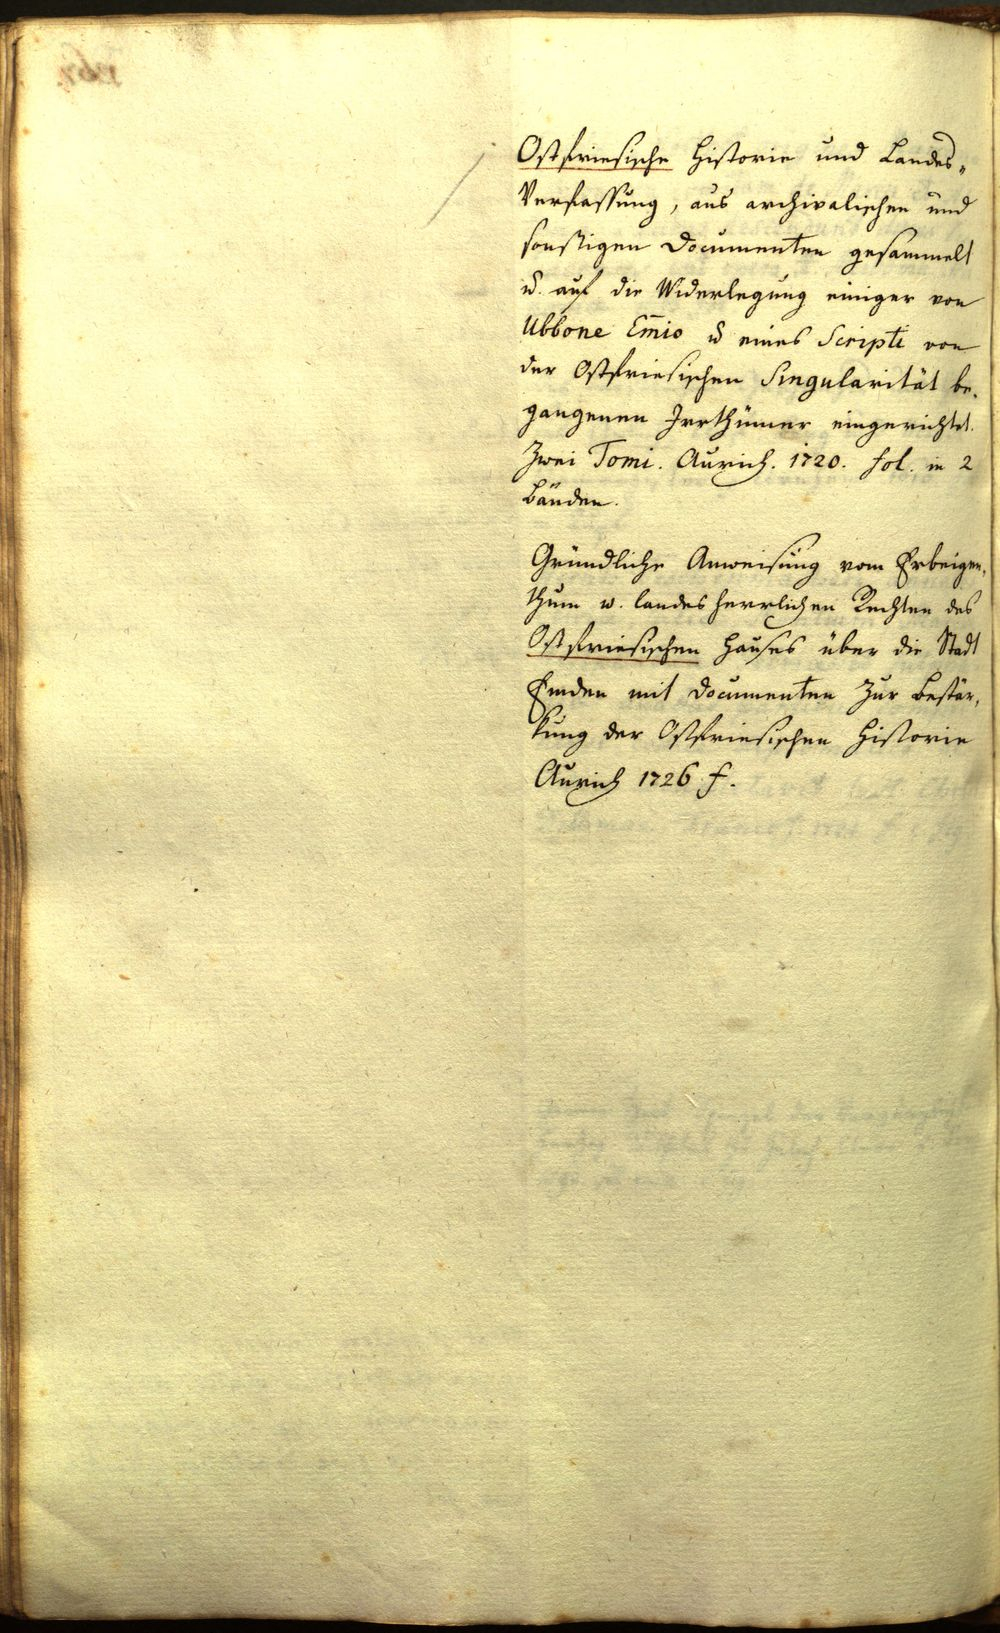 Ostfriesische Historie und Landes-
Verfassung, aus archivalischen und
sonstigen Documenten gesammelt
u. auf die Widerlegung einiger von
Ubbone Em̄io u eines Scripti von
der Ostfriesischen Singularität be-
gangenen Irrthümer eingerichtet.
Zwei Tomi. Aurich. 1720. fol. in 2
Bänden.
Gründliche Anweisung vom Erbeigen-
thum u. landesherrlichen Rechten des
Ostfriesischen Hauses über die Stadt
Emden mit Documenten zur Bestär-
kung der Ostfriesischen Historie
Aurich 1726 f.